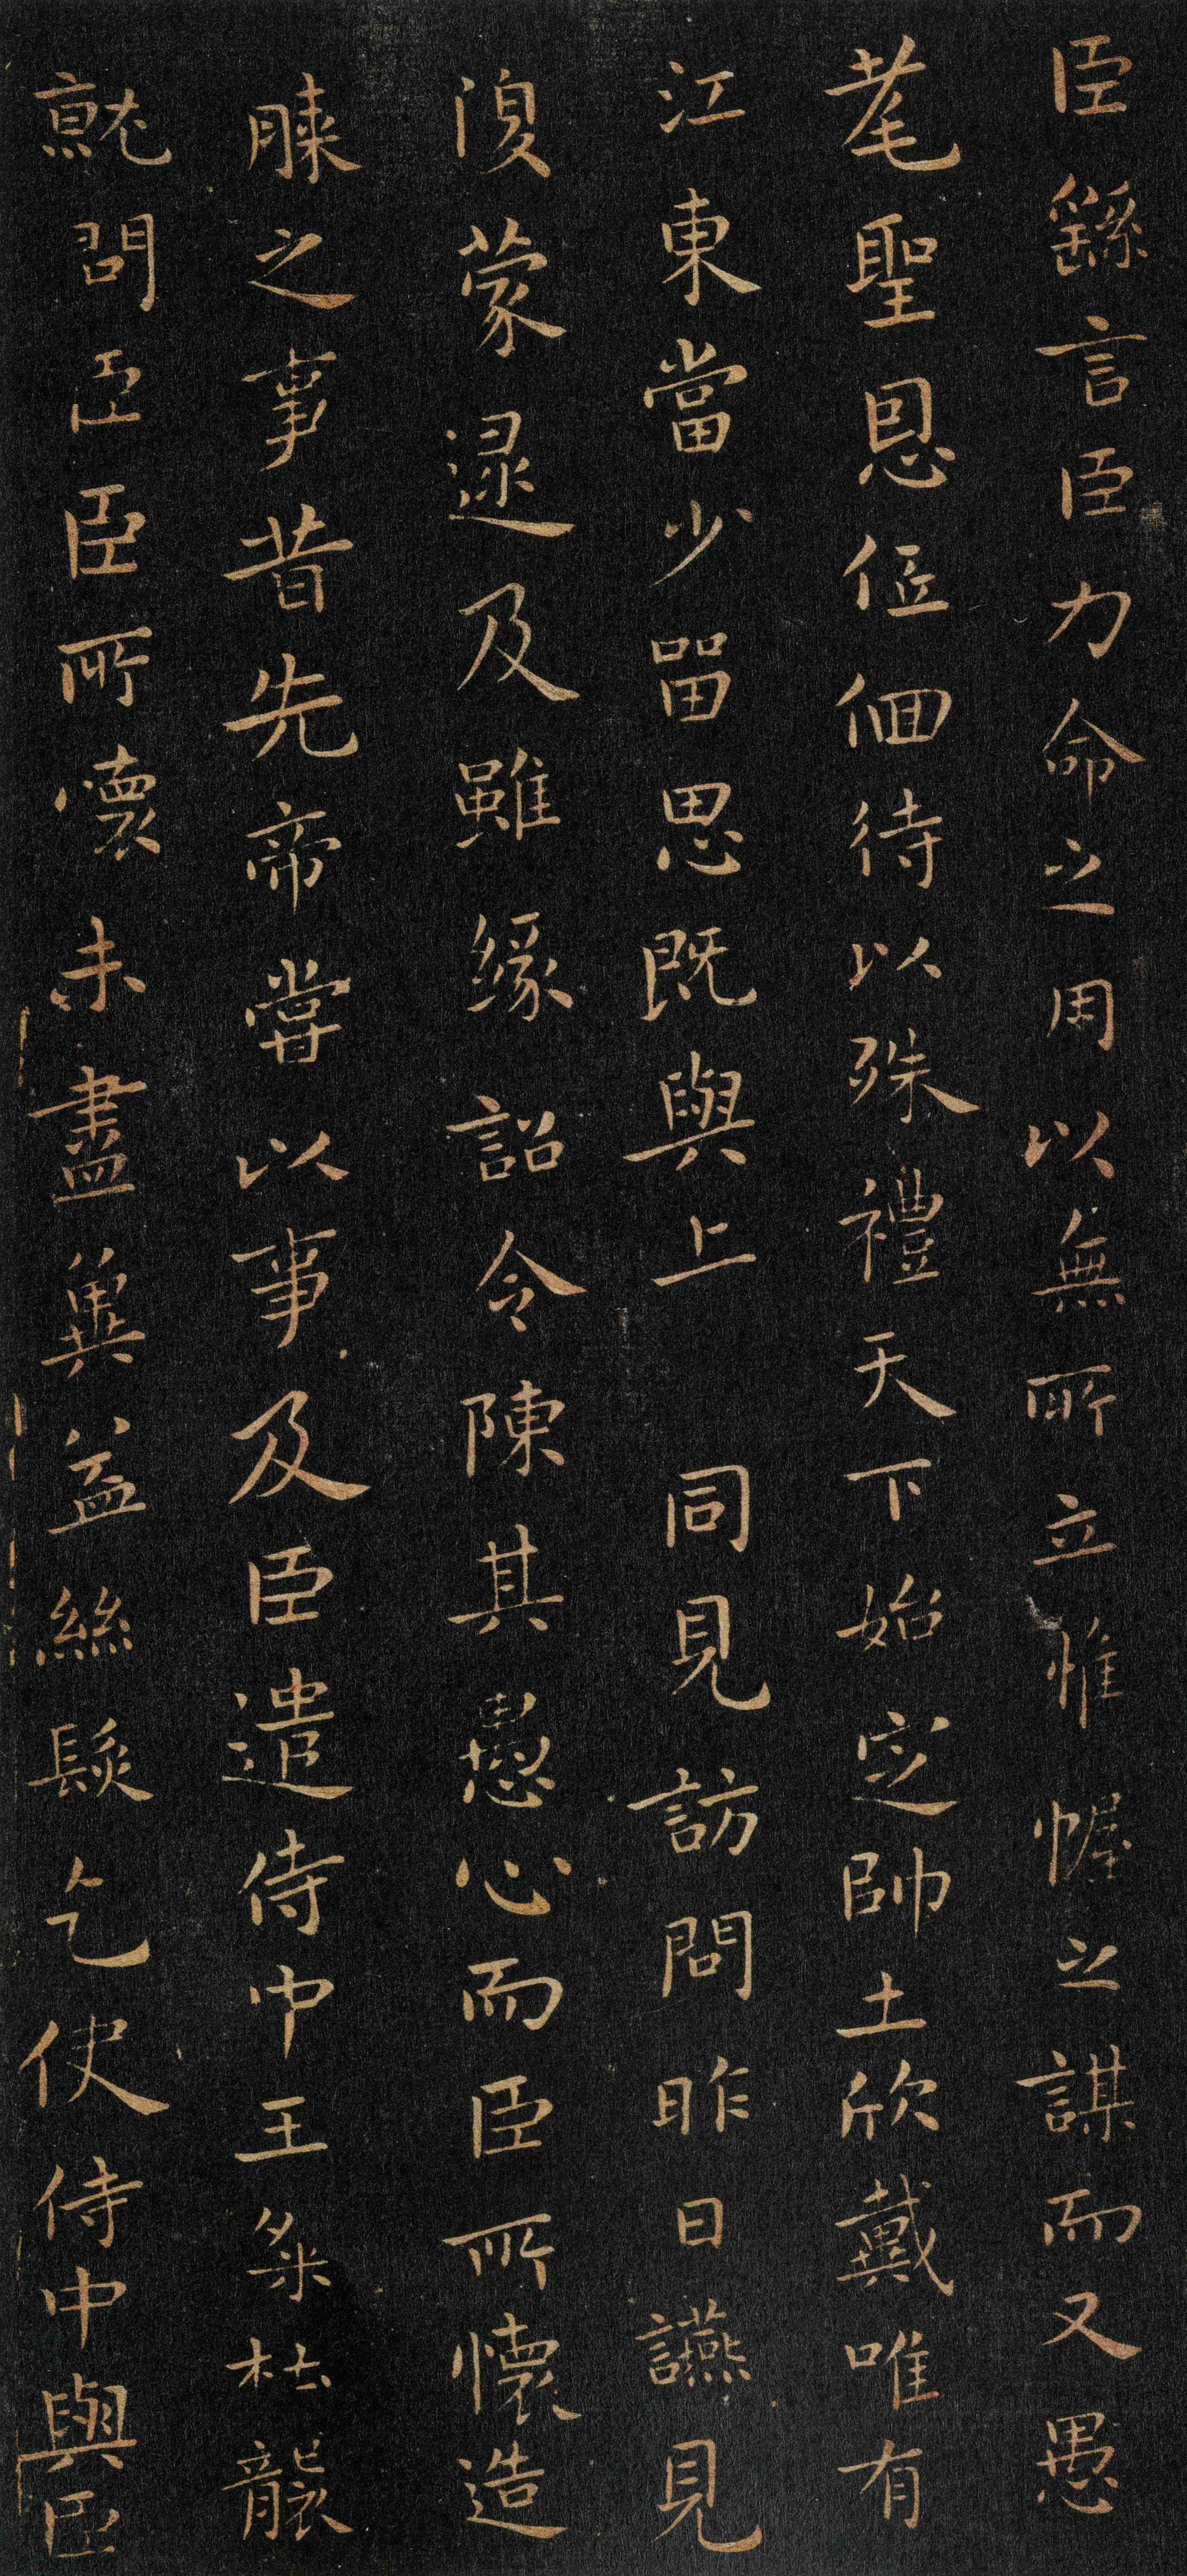 臣繇言臣力命之用以無所立惟幄之謀而又愚
耄聖恩低佪待以殊禮天下始定帥土欣戴唯有
江東當少留思既與上同見訪問昨日讌見
復蒙逮及雖緣詔令陳其愚心而臣所懷造
膝之事昔先帝嘗以事及臣遣侍中王粲杜襲
就問臣臣所懷未盡冀益絲髮乞使侍中與臣